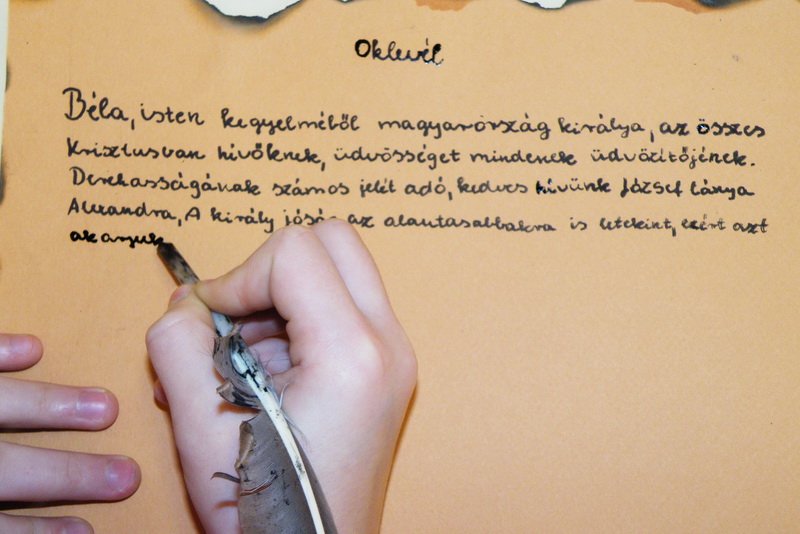 Oklevél
Béla, isten kegyelméből magyarország királya, az összes
Krisztusban hívőknek, üdvösséget mindenek üdvözítőjének.
Derekasságának számos jelét adó, kedves hívünk József lánya
Alexandra, A király jósága az alantasabbakra is letekint, ezért azt
akarjuk